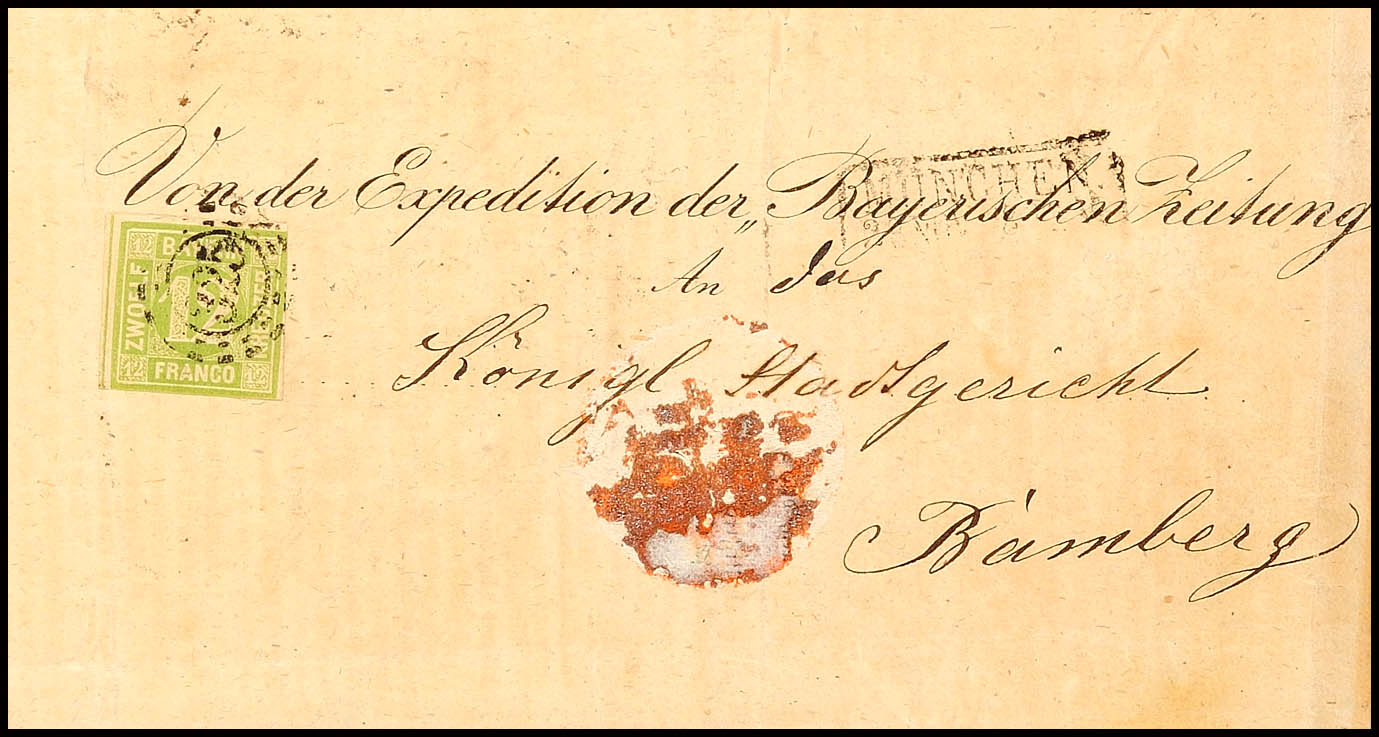 Von der Expedition der „Bayerischen Zeitung
MÜNCHEN
An das
Königl Stadtgericht
Bamberg
12 BAYERN
ZWOELF
12
KREUZER
12 FRANCO 12